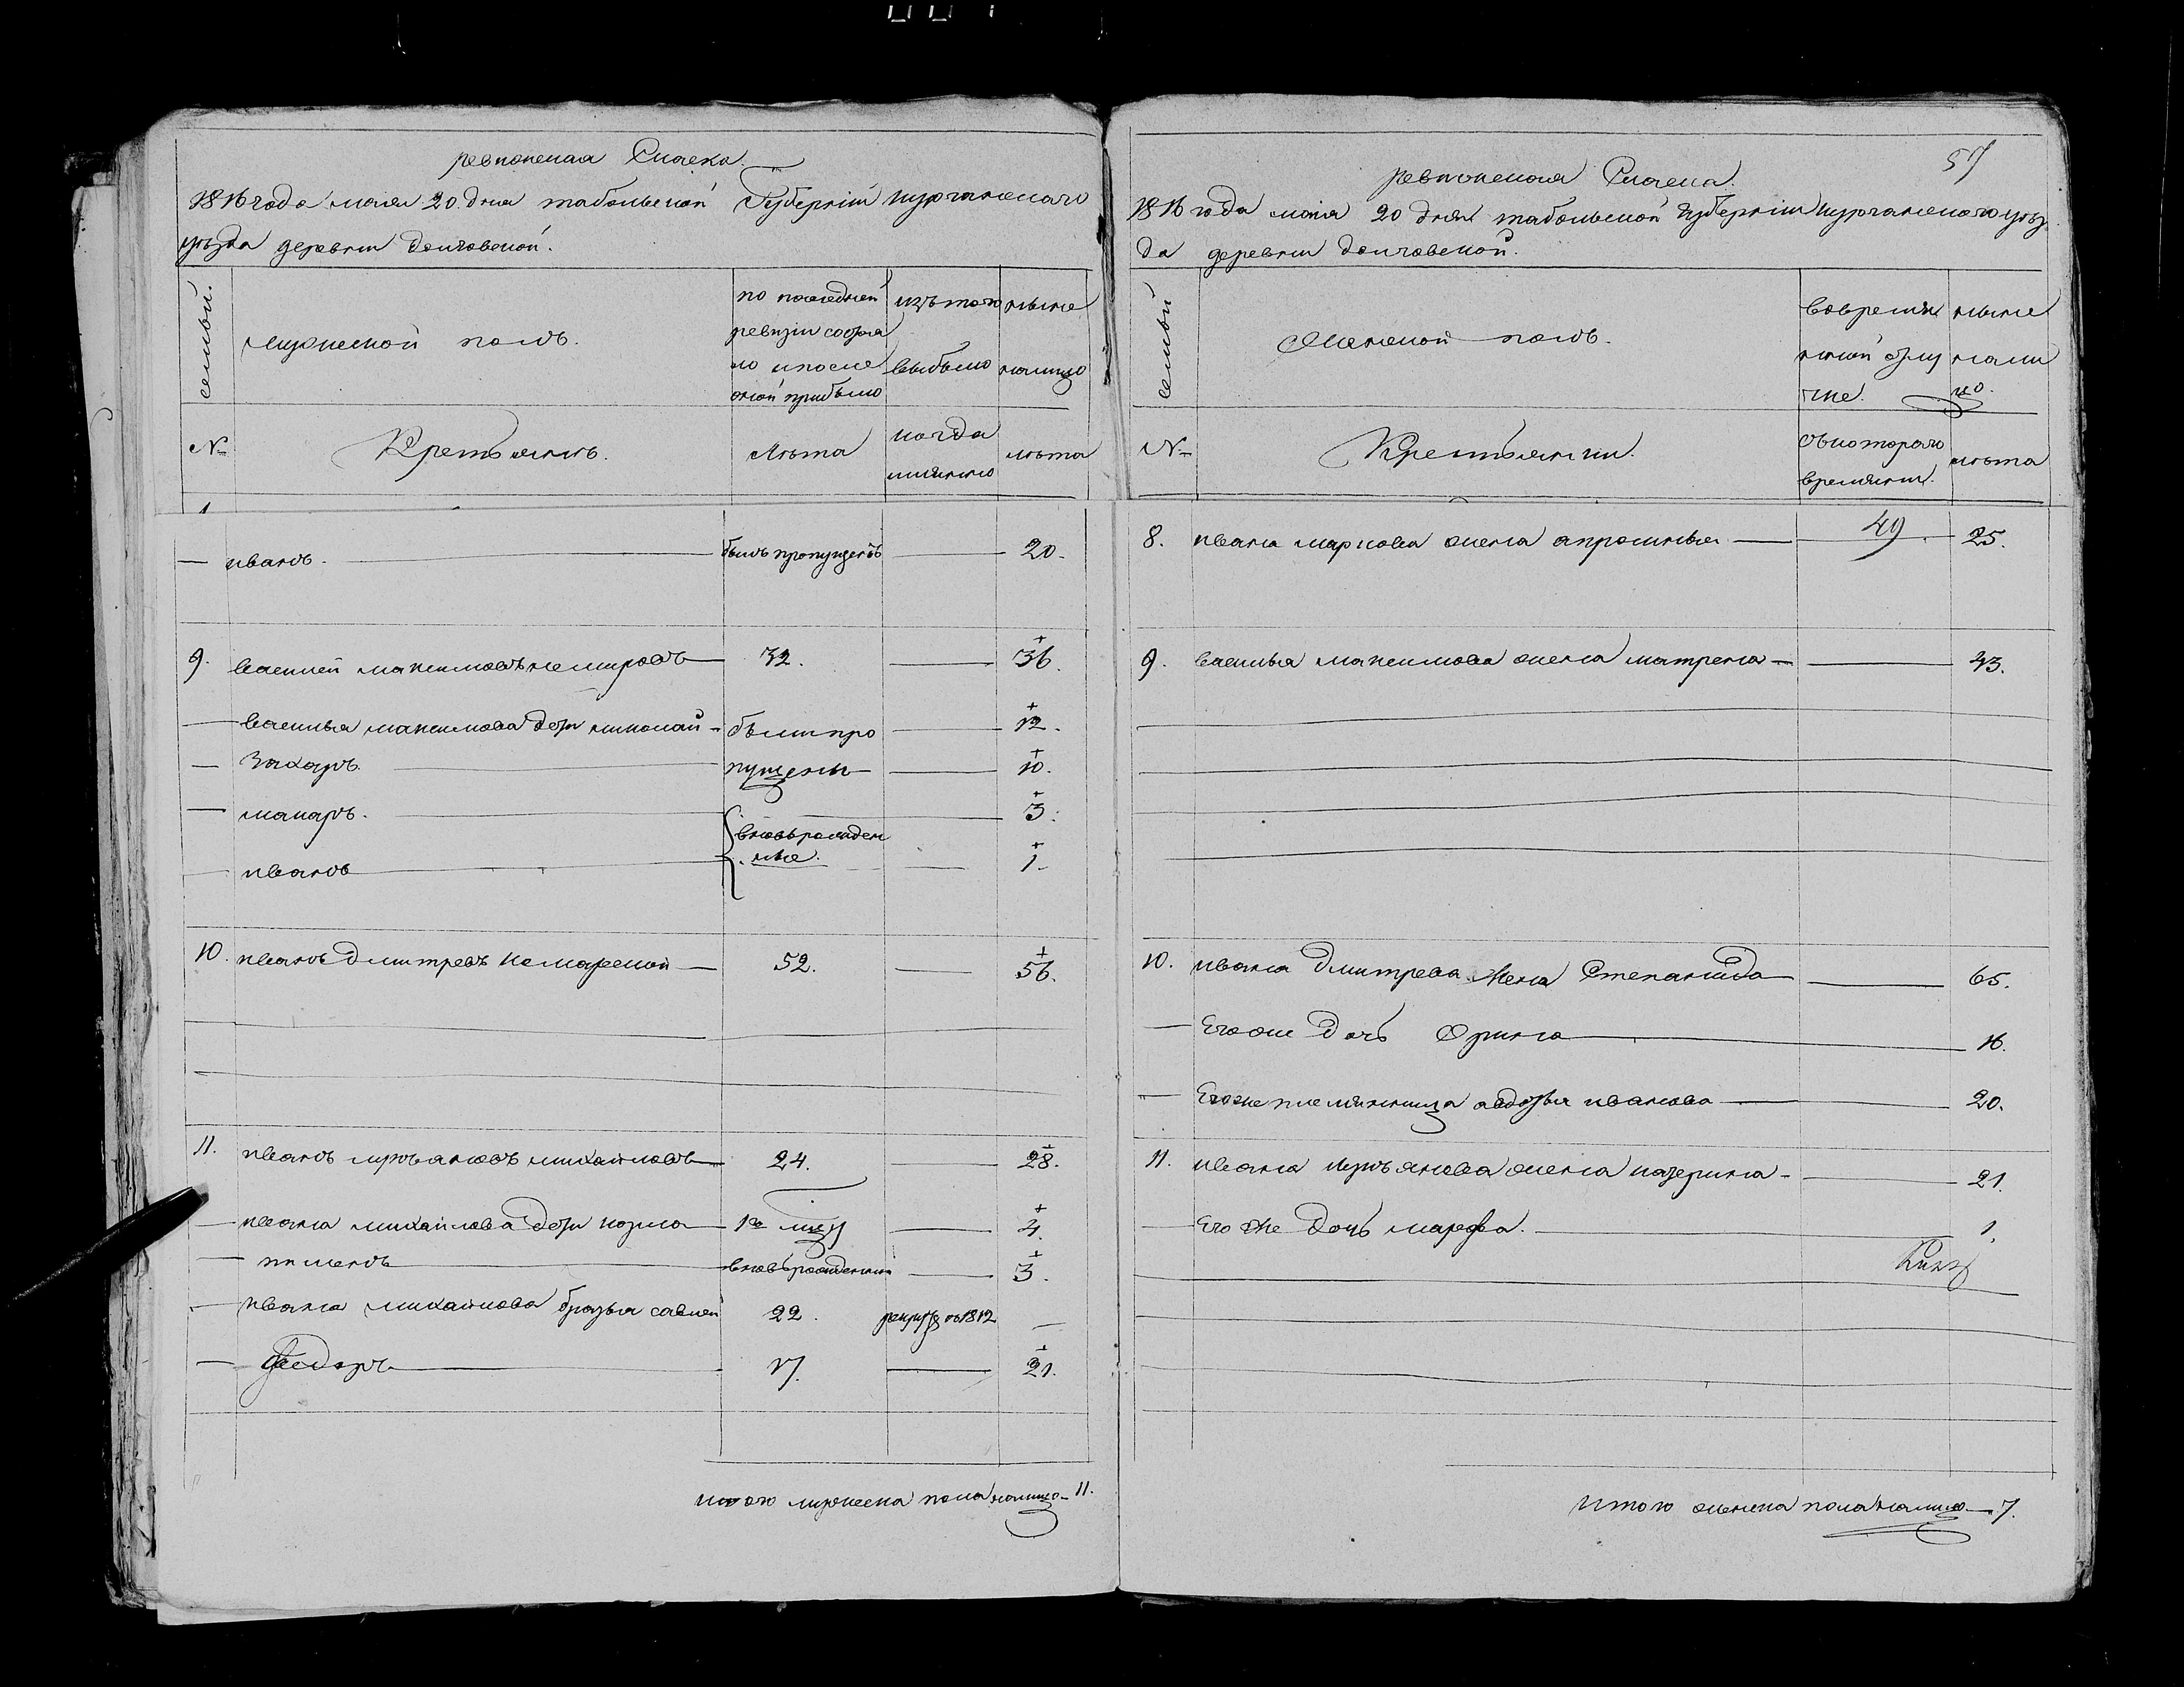 ревиская Скаска.
1816 года маия 20. дня табольской Губернии курганскаго
уезда деревни долговской.
семьи.
мужеской полъ.
по последней
ревизии состоя
ло и после
оной прибыло
изъ того
выбыло
ныне
налицо
№
Крестьянъ.
Лѣта
когда
имянно
лѣта
— иванъ. былъ пропущенъ — 20.
9. василей максимовъ 32. — 36.
— василья максимова дети николай — были про — 12.
— Захаръ. пущены — 10.
— макаръ. — 3.
вновь рожден
ные.
— иванъ — 1.
10. иванъ дмитревъ комарской — 52. — 56.
11. иванъ михайловъ 24. — 28.
— ивана михайлова дети козма — 4.
— пименъ вновь рожденный — 3.
— ивана михайлова братья савелей 22. рекруты въ 1812 —
— федоръ 17. — 21.
итого мужеска пола налицо — 11.
57
ревиская Скаска.
1816 года маия 20 дня табольской губернии курганскаго уез
да деревни долговской.
семьи
Женской полъ.
вовремян
ной отлу
чке.
ныне
нали
цо.
№
Крестьянки.
съ котораго
времяни.
лѣта
49
8. ивана маркова жена апросинья — 25.
9. василья максимова жена матрена — 43.
10. ивана дмитрева жена Степанида — 65.
— Его же дочь Орина — 16.
— Его же племянница авдотья иванова — 20.
11. ивана жена катерина — 21.
— Его же дочь марфа. — 1.
Итого женска пола налицо — 7.